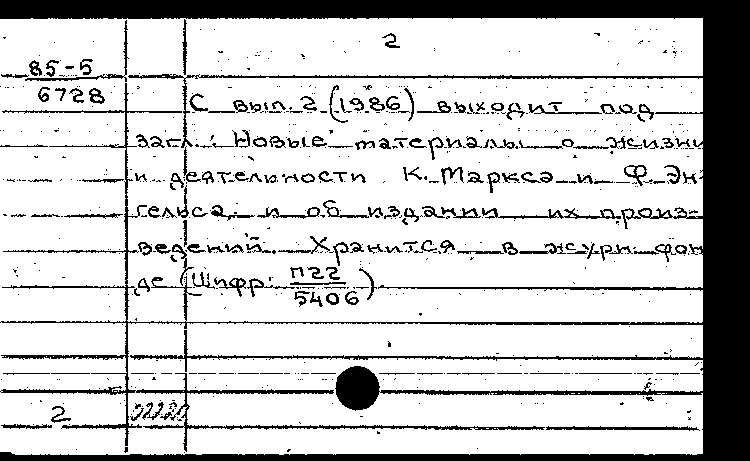 2
85-5
6728
С вып. 2 (1986) выходит под
загл.: Новые материалы о жизни
и деятельности К. Маркса и Ф. Эн-
гельса, и об издании их произ-
ведений. Хранится в журн. фон
де (Шифр: П22
5406)
2